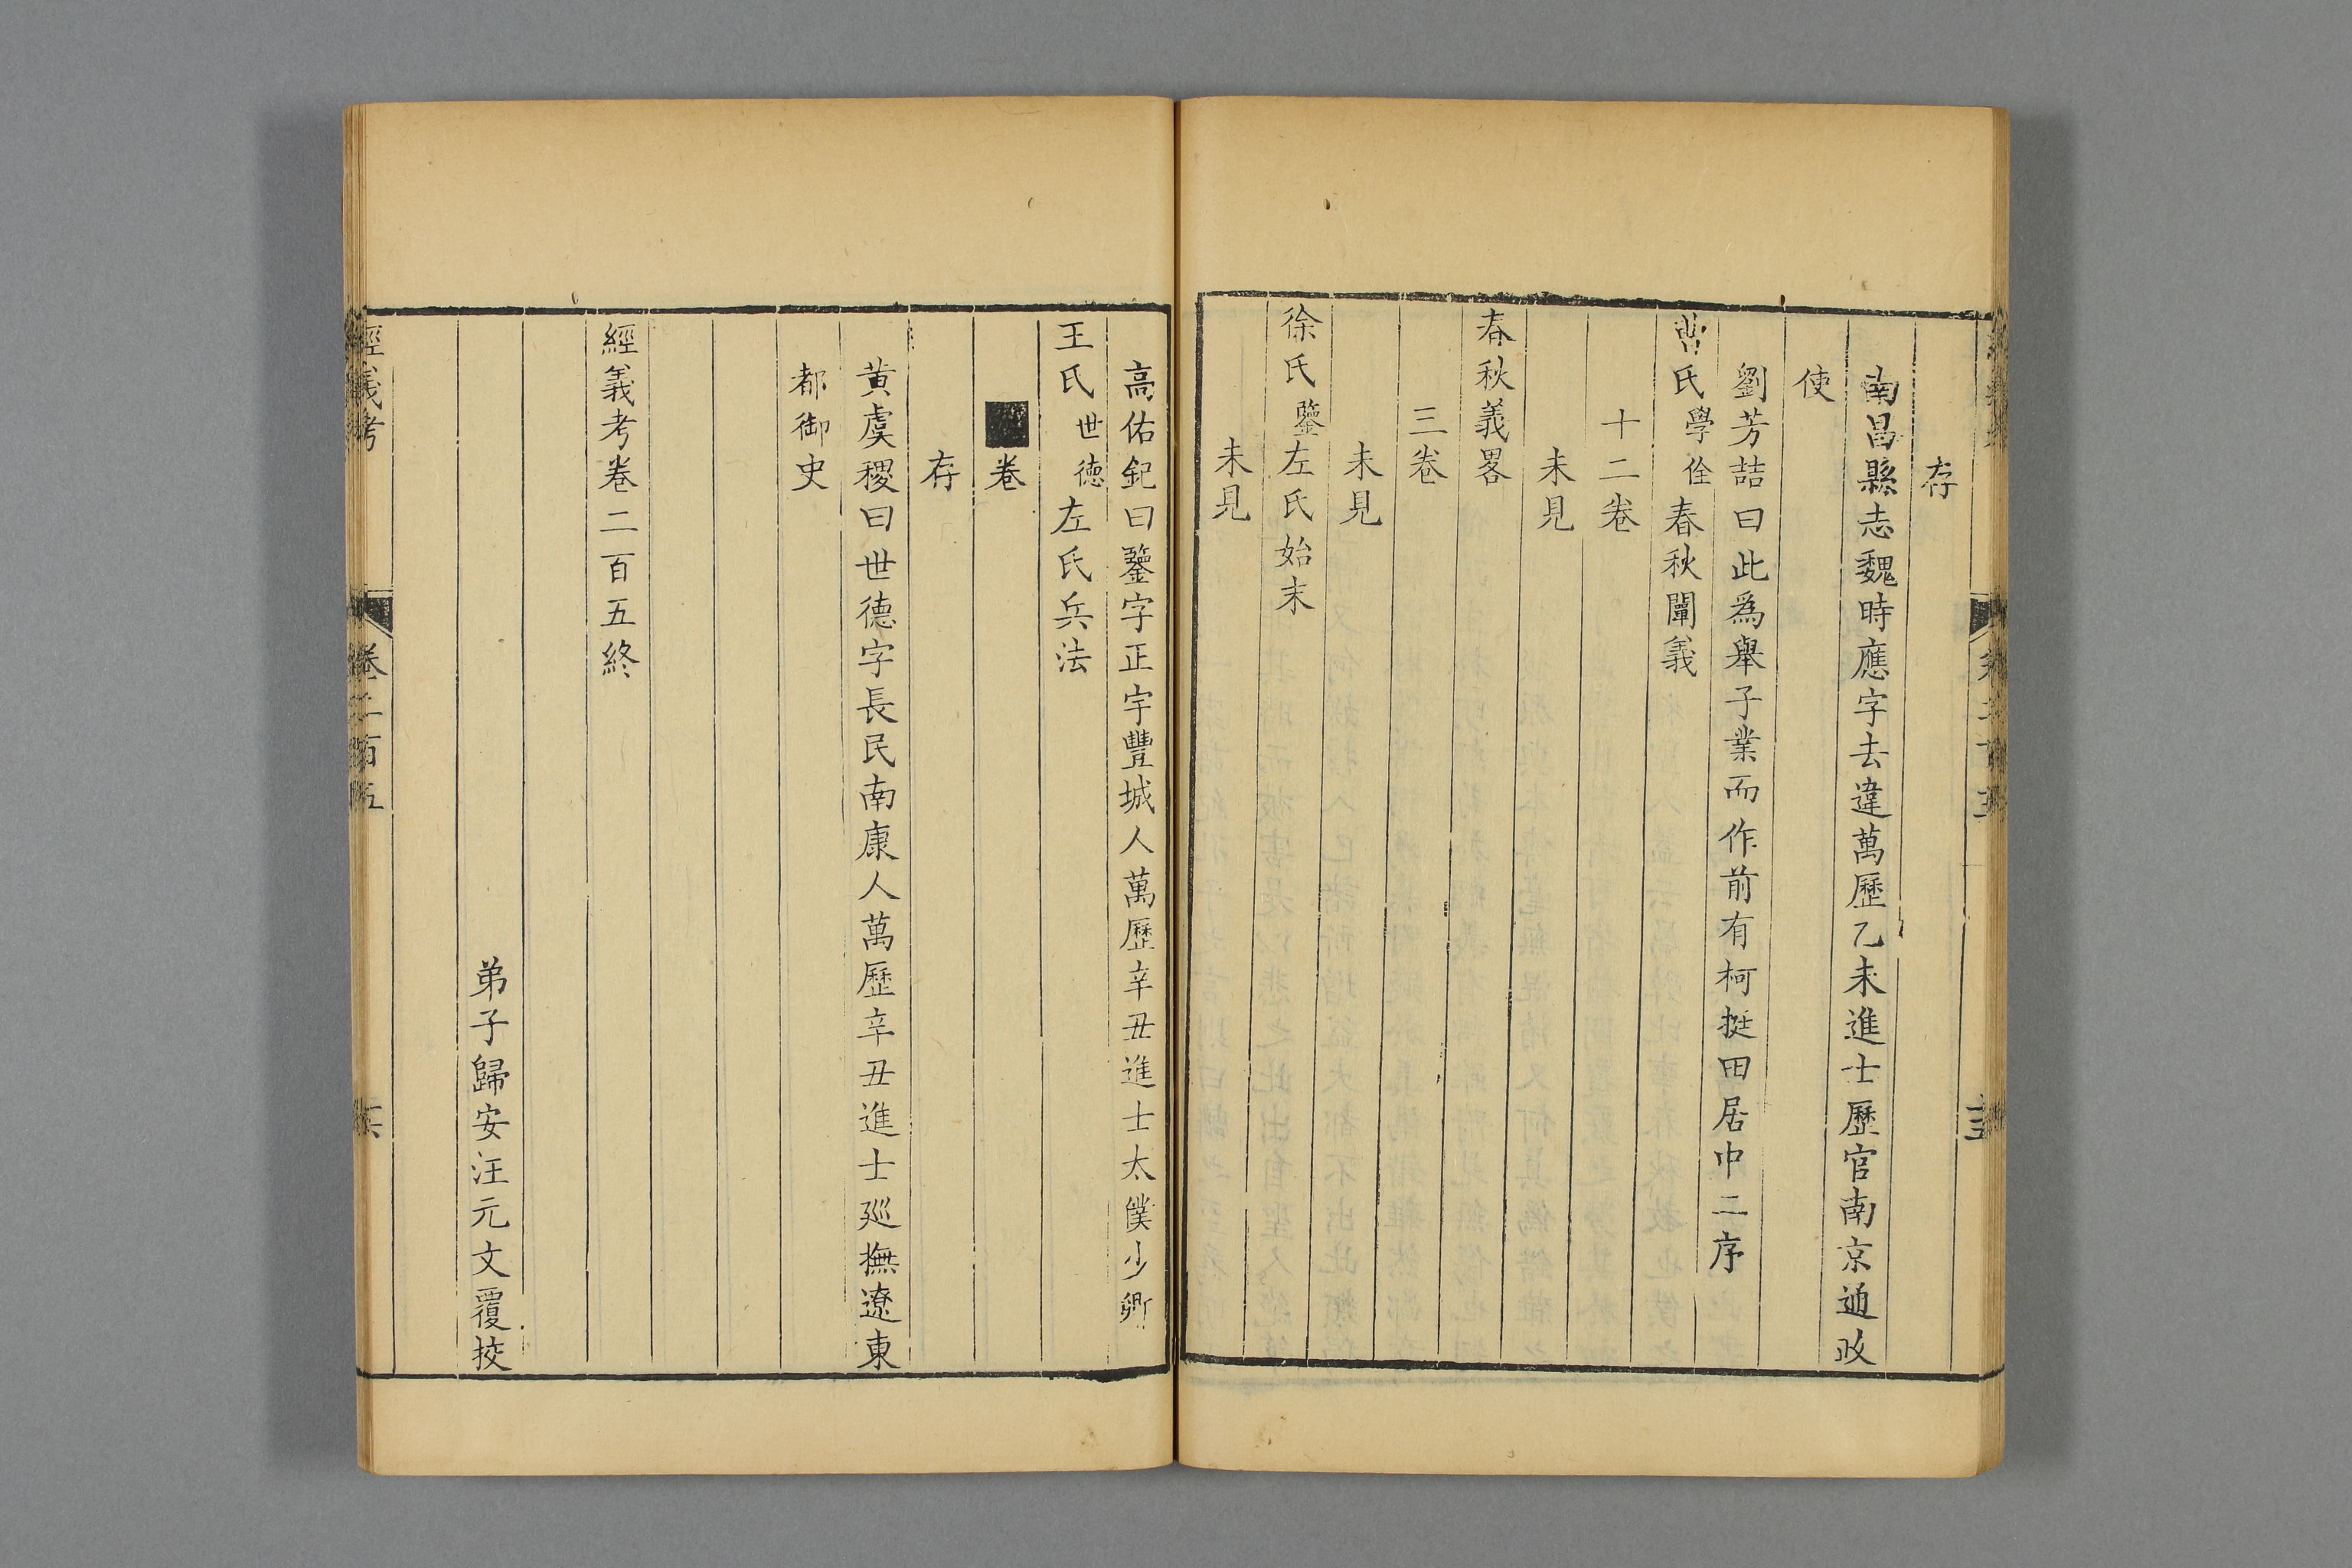 存
南昌縣志魏時應字去違萬歷乙未進士歷官南京通政
使
劉芳喆曰此為舉子業而作前有柯挺田居中二序
曹氏學佺春秋闡義
十二卷
未見
春秋義畧
三卷
未見
徐氏鑒左氏始末
未見
高佑釲曰鑒字正宇豐城人萬歷辛丑進士太僕少卿
王氏世德左氏兵法
卷
存
黃虞稷曰世德字長民南康人萬歷辛丑進士廵撫遼東
都御史
經義考卷二百五終
弟子歸安汪元文覆挍
經義考 卷二百五